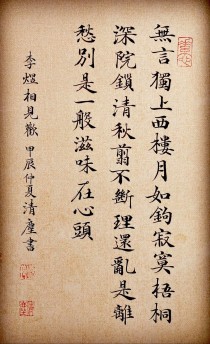 無言獨上西樓月如鉤寂寞梧桐
深院鎖清秋翦不斷理還亂是離
愁別是一般滋味在心頭
李煜相見歡 甲辰仲夏清塵書